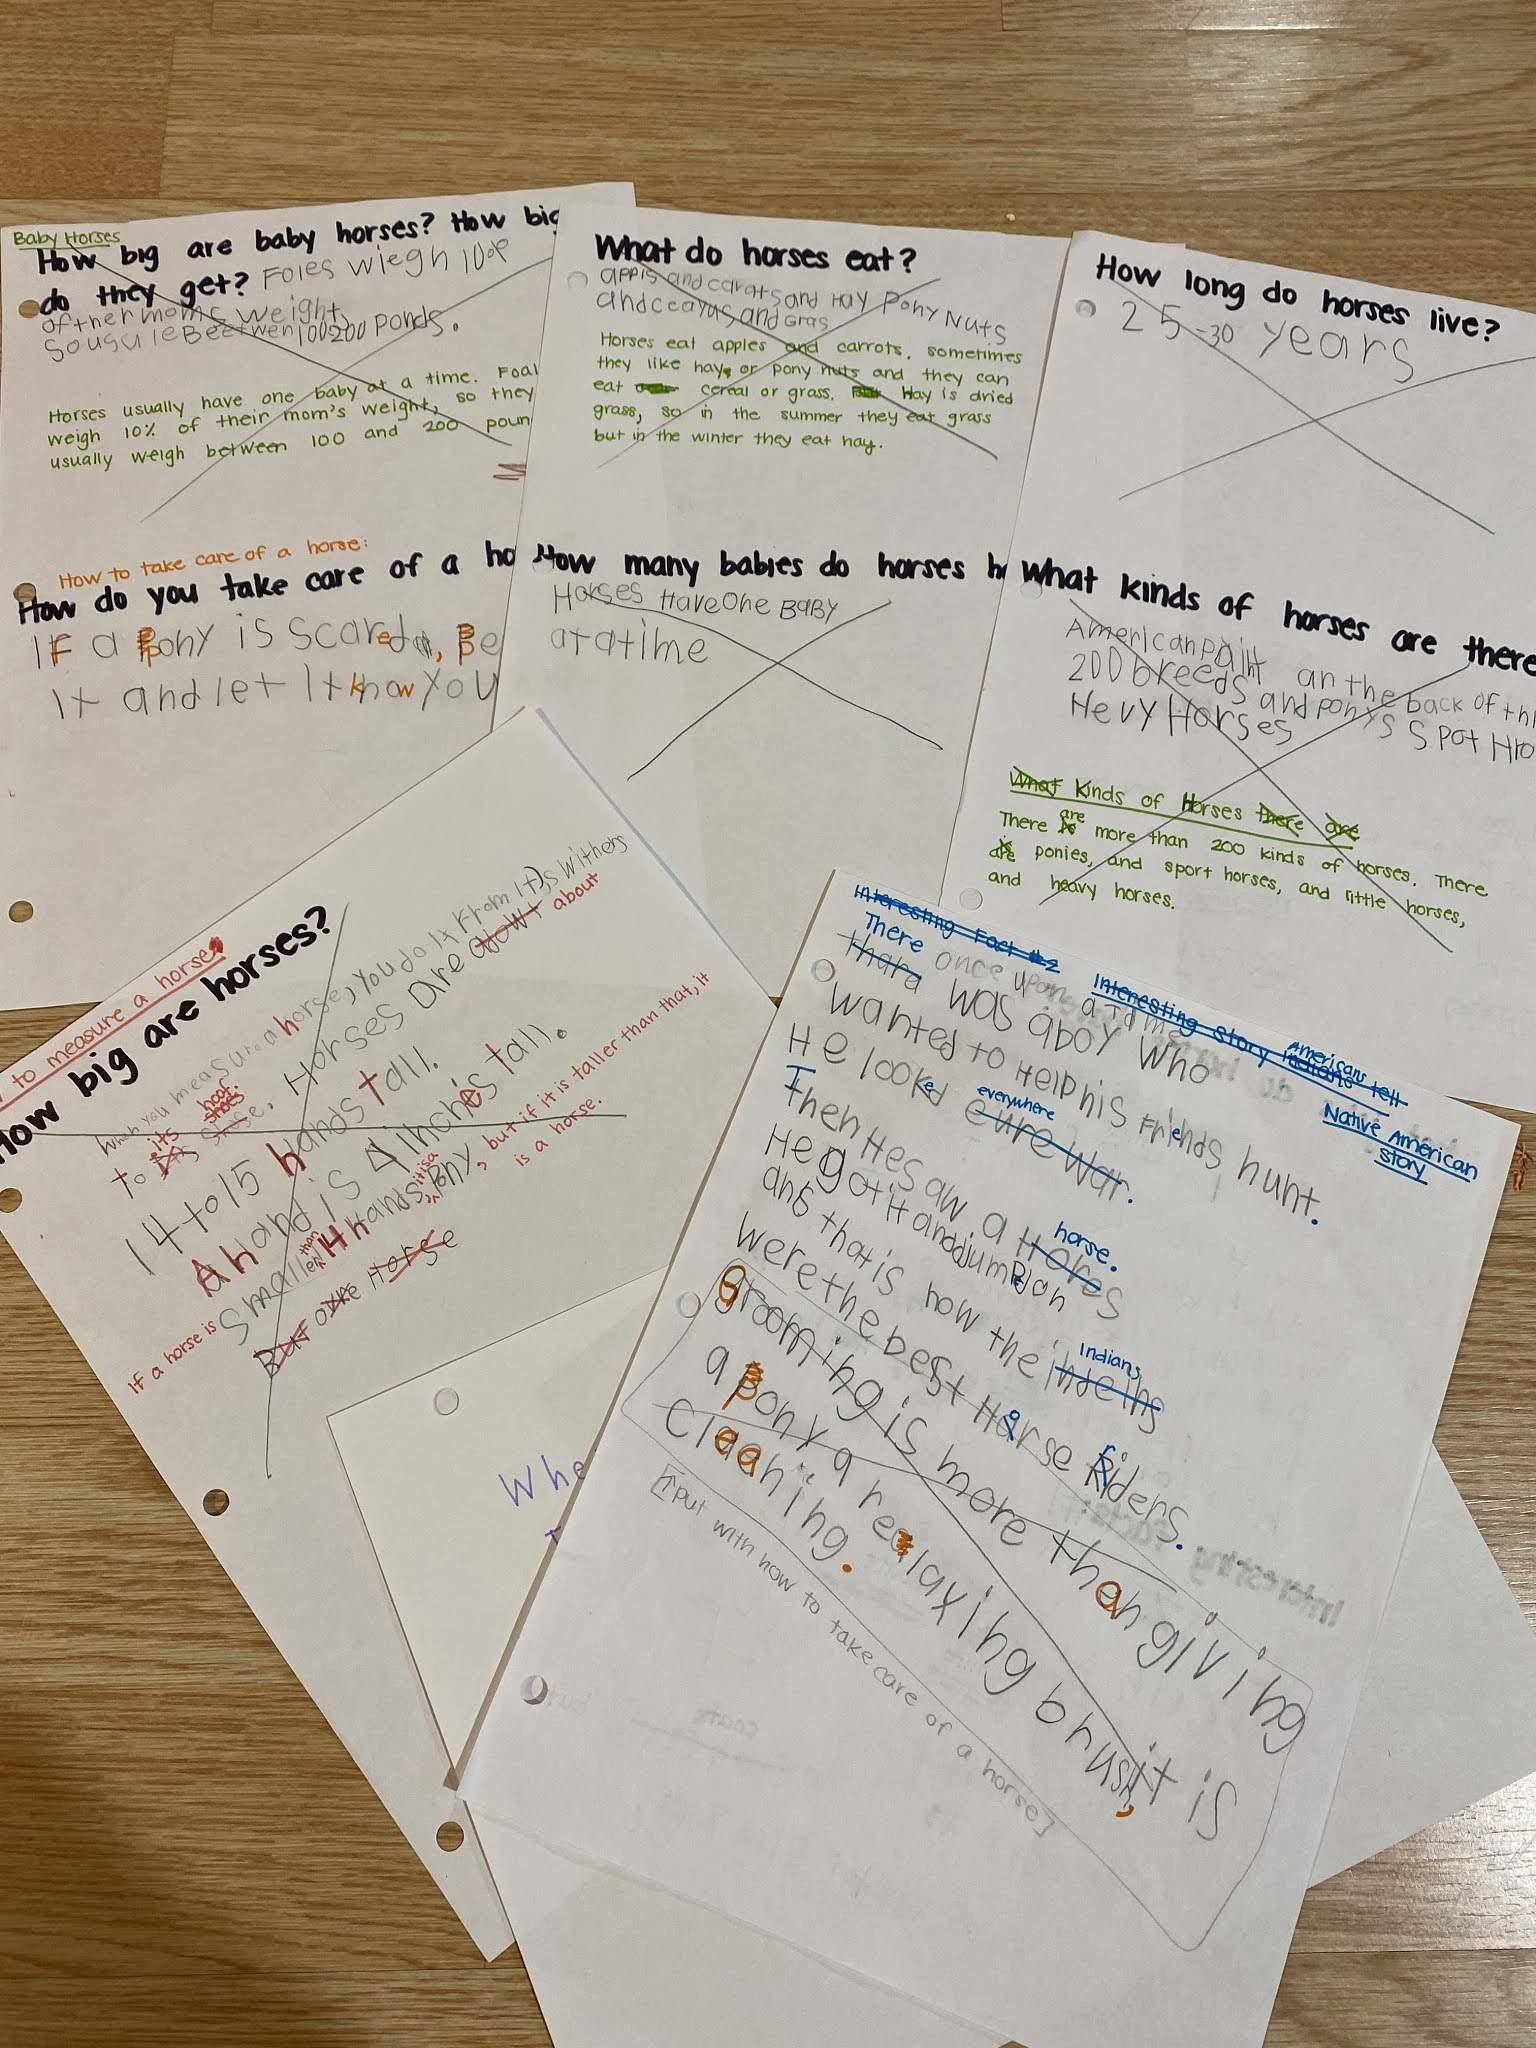 Baby Horses
How big are baby horses? How big
do they get? Foles wiegh 10%
of ther moms weight,
So usule Beetwen 100 200 ponds.
Horses usually have one baby at a time. Foal
weigh 10% of their mom's weight, so they
usually weigh between 100 and 200 poun
How to take care of a horse:
How do you take care of a ho
If a pony is scared, Be
It and let It know You
What do horses eat?
appls and carats and Hay Pony Nuts
and and Gras
Horses eat apples and carrots. sometimes
they like hay or pony nuts and they can
eat cereal or grass. Hay is dried
grass, so in the summer they eat grass
but in the winter they eat hay.
How many babies do horses h
Horses Have One BABY
at a time
How long do horses live?
25-30 years
What kinds of horses are there
American paint an the back of thi
200 breeds and ponys Spot Hro
Hevy Horses
What Kinds of Horses there are
There are more than 200 kinds of horses. There
are is ponies, and sport horses, and little horses,
and heavy horses.
to measure a horse
How big are horses?
When you measure a horse, you do it from it's withers
to its hoof shoes. Horses are about
14 to 15 hands tall.
A hand is 4 inches tall.
If a horse is smaller than 14 hands, it is a pony, but if it is taller than that, it
is a horse.
But ove Horse
Whe
Interesting Fact #2
Interesting Story Indians Americans tell
Native American
story
There thara once upon a time
was a boy who
wanted to Help his Friends hunt.
He looked everywhere eure war.
Then He saw a horse. Hores
He got it and jumped on
and that is how the Indians indeihs
were the best Horse Riders.
Grooming is more than giving
a pony a relaxing brush, it is
Cleaning.
[↑put with how to take care of a horse]